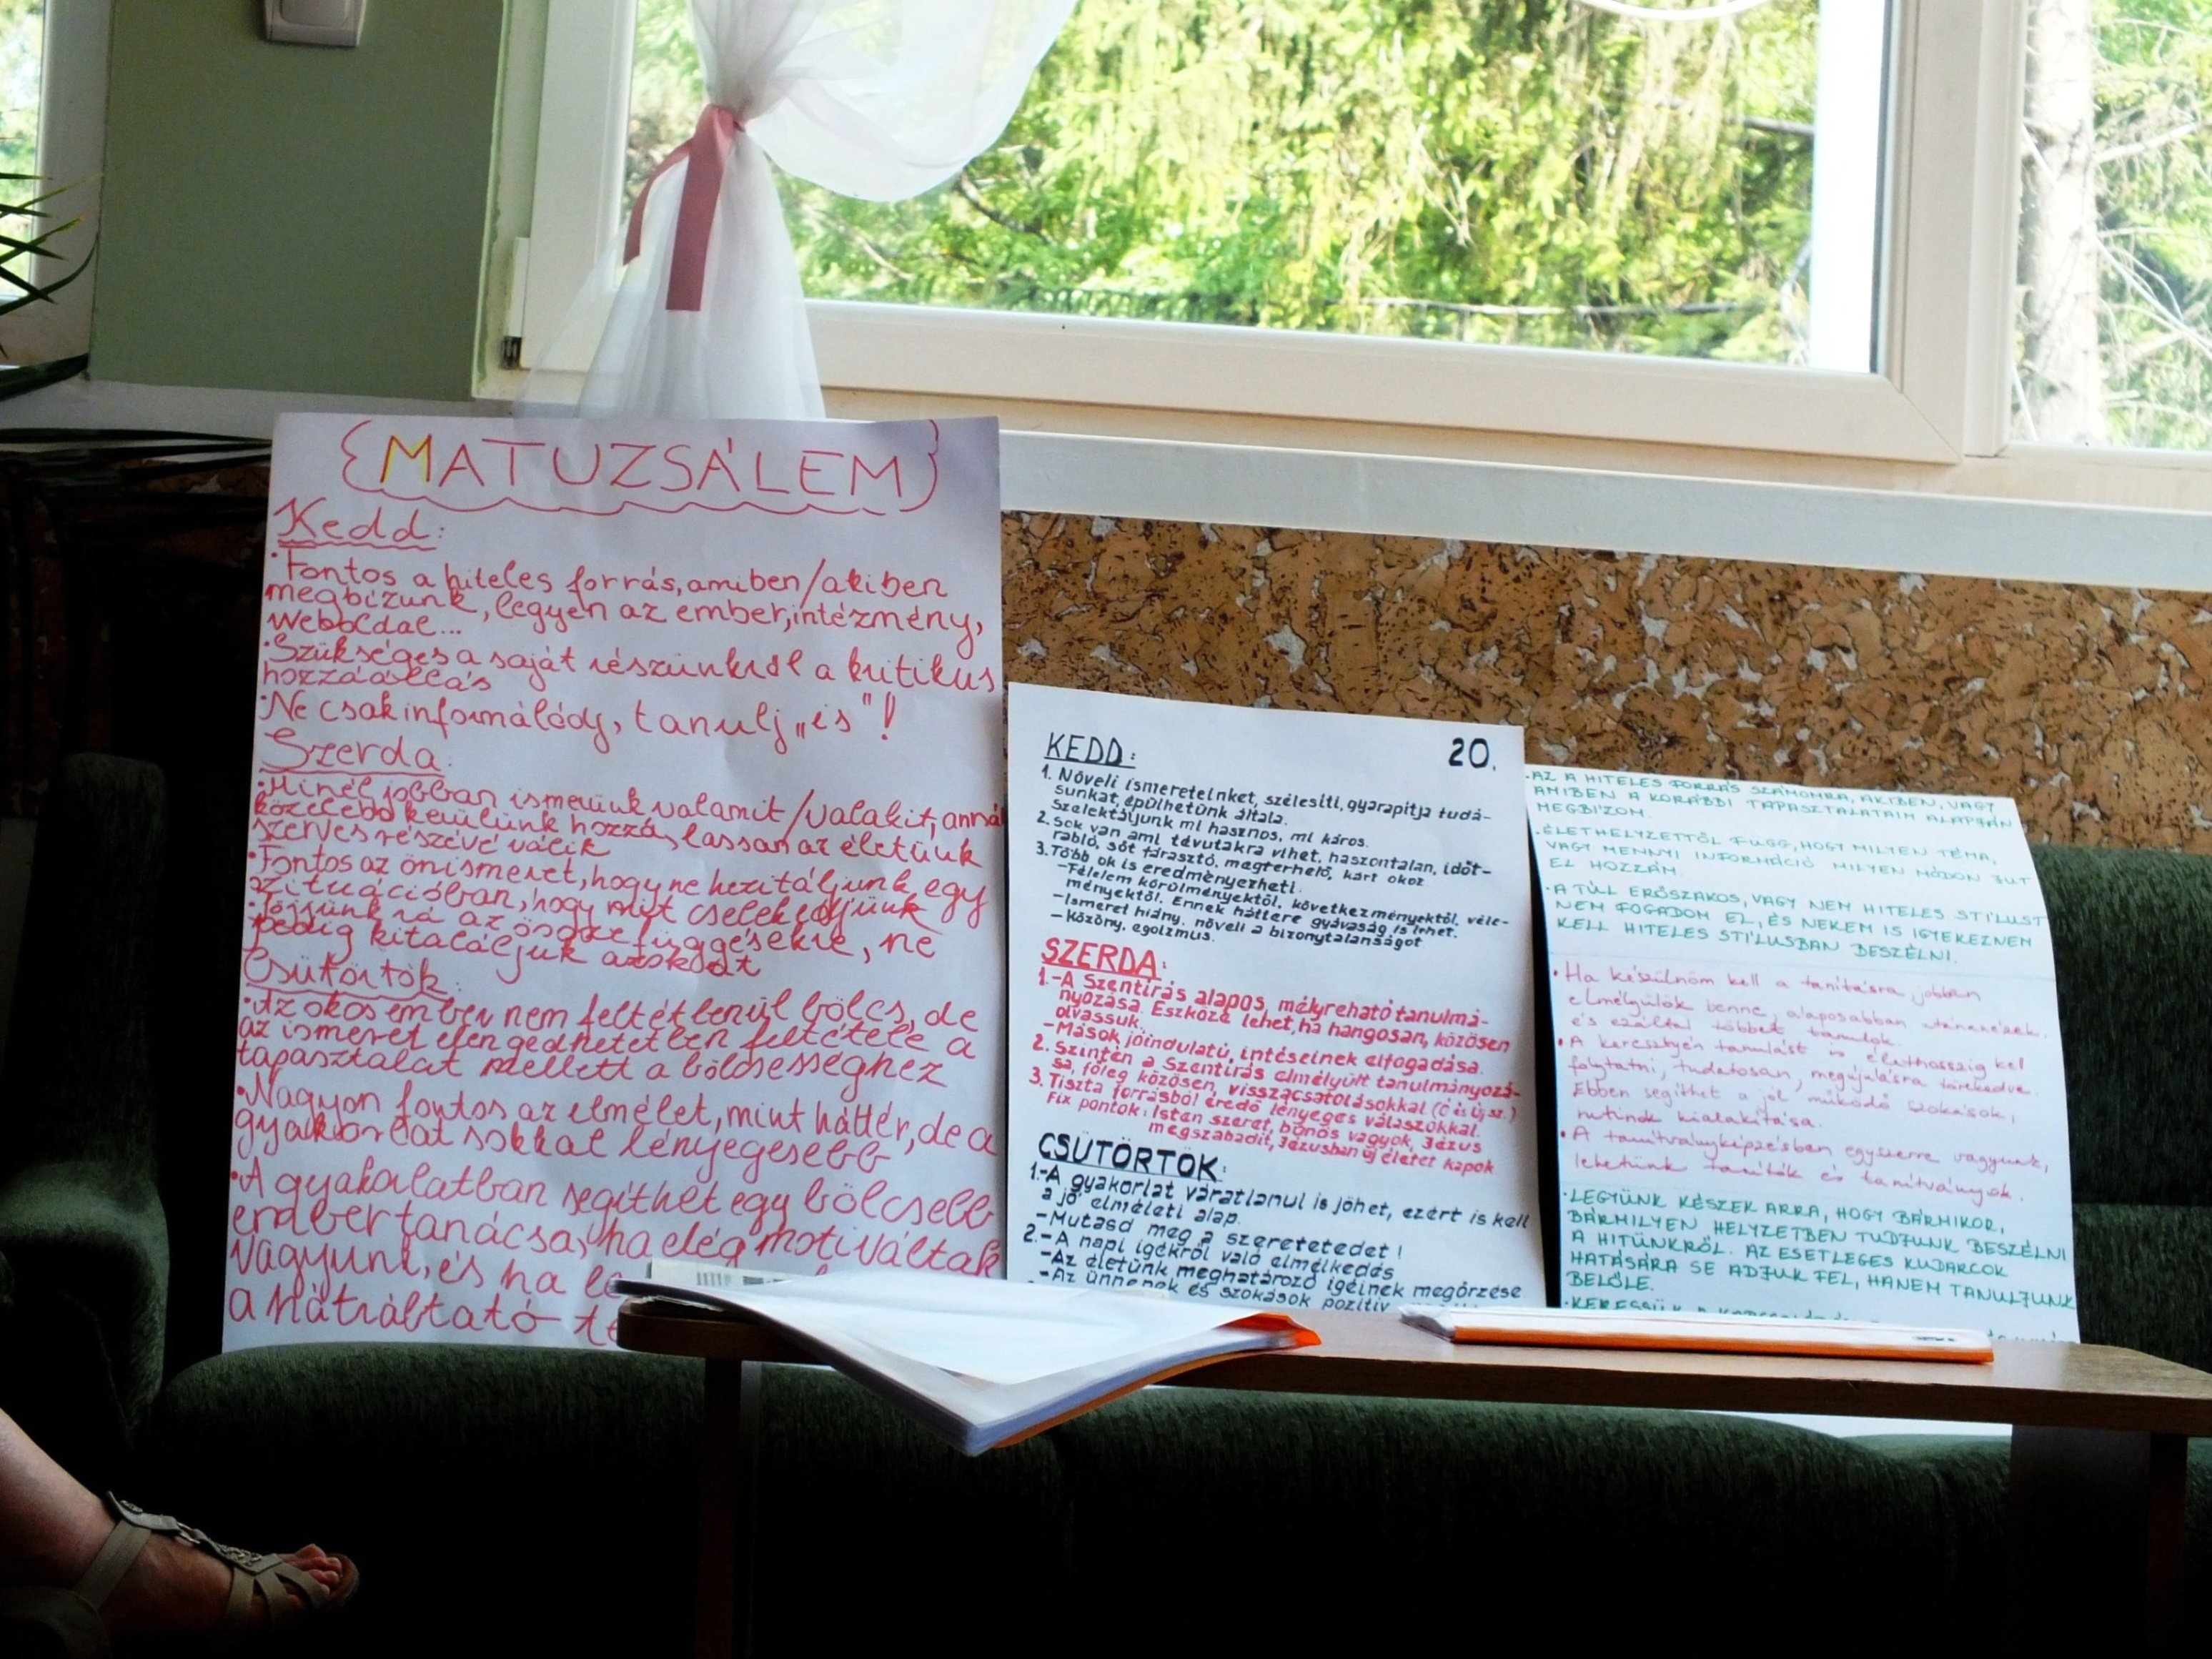 MATUZSÁLEM
Kedd:
• Fontos a hiteles forrás, amiben/akiben
megbízunk, legyen az ember, intézmény,
weboldal...
• Szükséges a saját részünkről a kritikus
hozzáállás
• Ne csak informálódj, tanulj „is"!
Szerda:
• Minél jobban ismerünk valamit/valakit, annál
közelebb kerülünk hozzá, lassan az életünk
szerves részévé válik
• Fontos az önismeret, hogy ne hezitáljunk egy
szituációban, hogy mit cselekedjünk
• Jöjjünk rá az összefüggésekre, ne
pedig kitaláljuk azokat
Csütörtök:
• Az okos ember nem feltétlenül bölcs, de
az ismeret elengedhetetlen feltétele a
tapasztalat mellett a bölcsességhez
• Nagyon fontos az elmélet, mint háttér, de a
gyakorlat sokkal lényegesebb
• A gyakorlatban segíthet egy bölcsebb
ember tanácsa, ha elég motiváltak
vagyunk, és ha
a hátráltató
KEDD: 20.
1. Növeli ismereteinket, szélesíti, gyarapítja tudá-
sunkat, épülhetünk általa.
Szelektáljunk mi hasznos, mi káros.
2. Sok van ami tévutakra vihet, haszontalan, időt-
rabló, sőt fárasztó, megterhelő, kárt okoz
3. Több ok is eredményezheti.
-Félelem körülményektől, következményektől, véle-
ményektől. Ennek háttere gyávaság is lehet.
-Ismeret hiány, növeli a bizonytalanságot
-Közöny, egoizmus.
SZERDA:
1.-A Szentírás alapos, mélyreható tanulmá-
nyozása. Eszköze lehet, ha hangosan, közösen
olvassuk.
-Mások jóindulatú, intéseinek elfogadása.
2. Szintén a Szentírás elmélyült tanulmányozá-
sa, főleg közösen, visszacsatolásokkal (Ó és Új sz.)
3. Tiszta forrásból eredő lényeges válaszokkal.
Fix pontok: Isten szeret, bűnös vagyok, Jézus
megszabadít, Jézusban új életet kapok
CSÜTÖRTÖK:
1.-A gyakorlat váratlanul is jöhet, ezért is kell
a jó elméleti alap.
-Mutasd meg a szeretetedet!
2.-A napi igékről való elmélkedés
-Az életünk meghatározó igéinek megőrzése
-Az ünnepek és szokások pozitív
• AZ A HITELES FORRÁS SZÁMOMRA, AKIBEN, VAGY
AMIBEN A KORÁBBI TAPASZTALATAIM ALAPJÁN
MEGBÍZOM.
• ÉLETHELYZETTŐL FÜGG, HOGY MILYEN TÉMA,
VAGY MENNYI INFORMÁCIÓ MILYEN MÓDON JUT
EL HOZZÁM.
• A TÚL ERŐSZAKOS, VAGY NEM HITELES STÍLUST
NEM FOGADOM EL, ÉS NEKEM IS IGYEKEZNEM
KELL HITELES STÍLUSBAN BESZÉLNI.
• Ha készülnöm kell a tanításra jobban
elmélyülök benne, alaposabban utánanézek,
és ezáltal többet tanulok.
• A keresztyén tanulást is élethosszig kell
folytatni, tudatosan, megújulásra törekedve.
Ebben segíthet a jól működő szokások,
rutinok kialakítása.
• A tanítványképzésben egyszerre vagyunk,
lehetünk tanítók és tanítványok.
• LEGYÜNK KÉSZEK ARRA, HOGY BÁRMIKOR,
BÁRMILYEN HELYZETBEN TUDJUNK BESZÉLNI
A HITÜNKRŐL. AZ ESETLEGES KUDARCOK
HATÁSÁRA SE ADJUK FEL, HANEM TANULJUNK
BELŐLE.
• KERESSÜK A